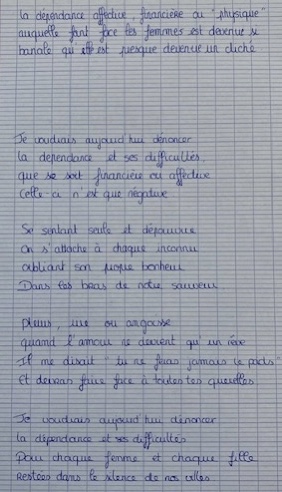 la dépendance affective financière ou "physique"
auquelle font face les femmes est devenue si
banale qu'elle est presque devenue un cliché
Je voudrais aujourd hui dénoncer
la dependance et ses difficultés,
que se soit financière ou affective
Celle ci n'est que négative
Se sentant seule et dépourvue
On s'attache à chaque inconnu
oubliant son propre bonheur
Dans les bras de notre sauveur
pleurs, une ou angoisse
quand l'amour ne devient qu'un rêve
Il me disait "tu ne feras jamais le poids"
Et devras faire face à toutes tes querelles
Je voudrais aujourd hui dénoncer
la dépendance et ses difficultés
Pour chaque femme et chaque fille
Restées dans le silence de nos villes